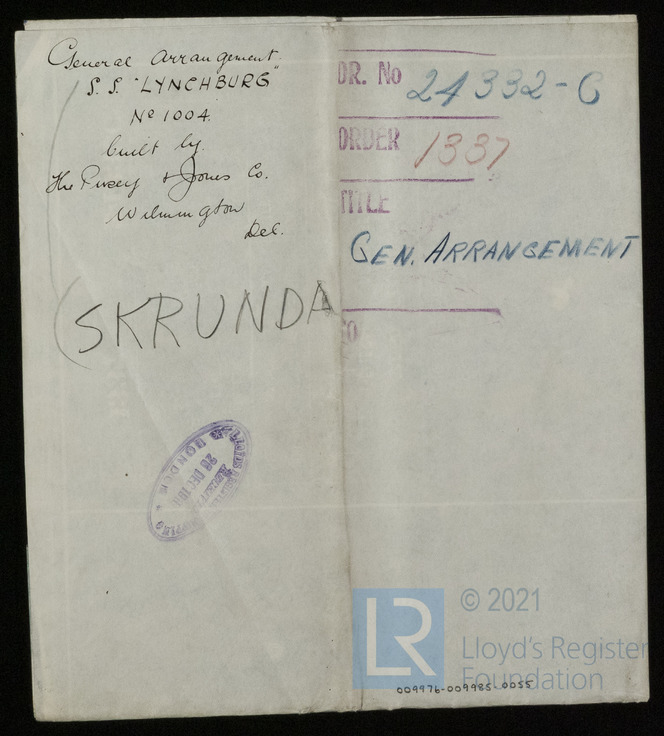 General Arrangement.
S.S. "LYNCHBURG"
No 1004.
built by.
The Pusey & Jones Co.
Wilmington
Del.
(SKRUNDA
DR. No 24332-C
ORDER 1337
TITLE
GEN. ARRANGEMENT
LONDON
26 DEC
LR
© 2021
Lloyd's Register
Foundation
009976-009985-0055